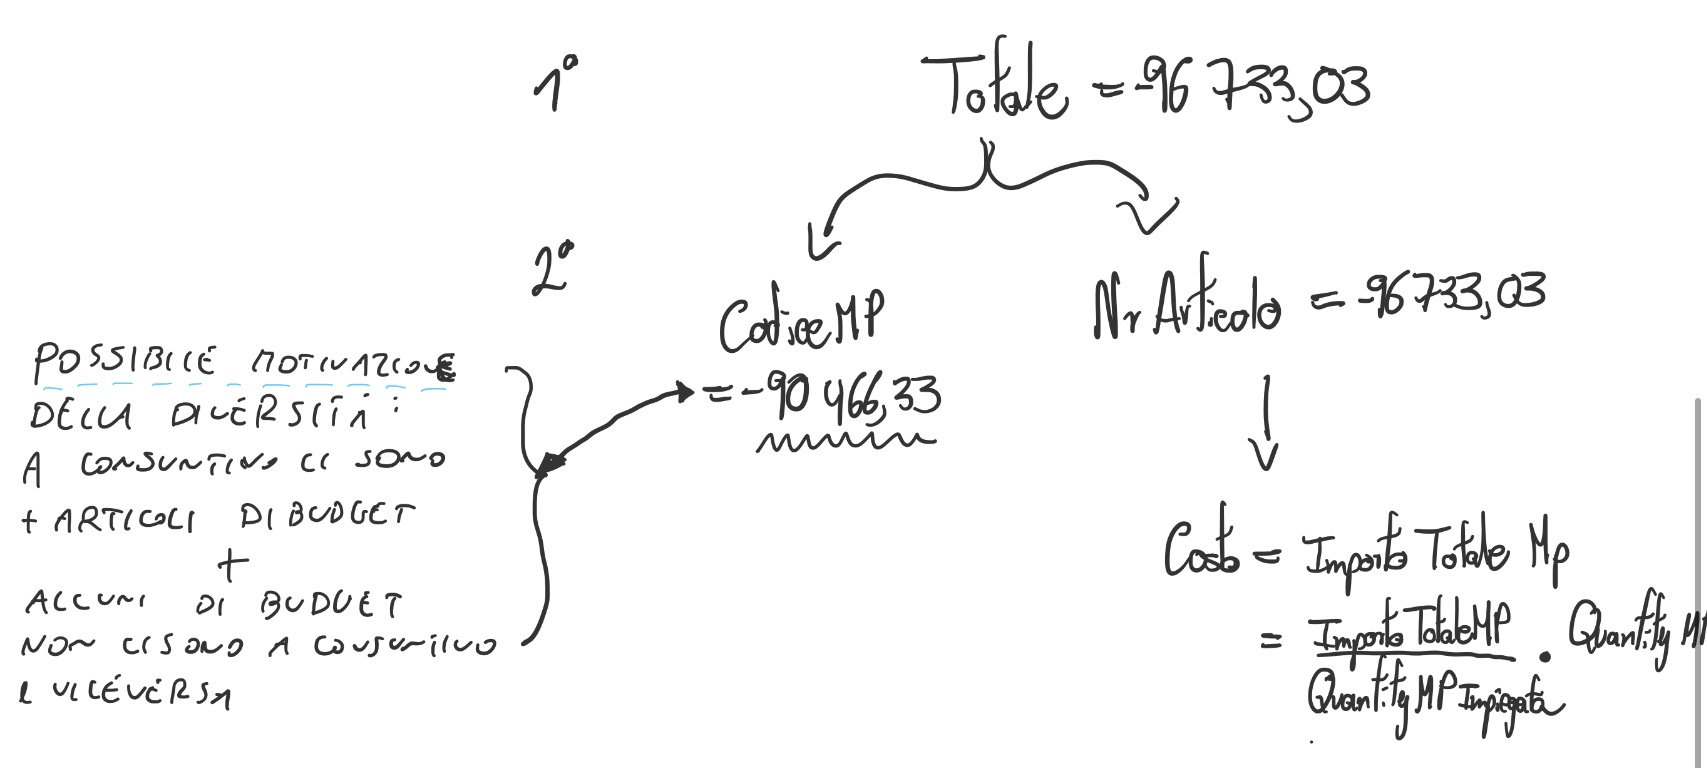 1°
Totale = -96 733,03
2°
Codice MP
= -90 466,33
Nr Articolo = -96733,03
POSSIBILE MOTIVAZIONE
DELLA DIVERSITÀ :
A CONSUNTIVO CI SONO
+ ARTICOLI DI BUDGET
+
ALCUNI DI BUDGET
NON CI SONO A CONSUNTIVO
E VICEVERSA
Costo = Importo Totale Mp
= Importo Totale MP
Quantity MP Impiegata
. Quantity MP